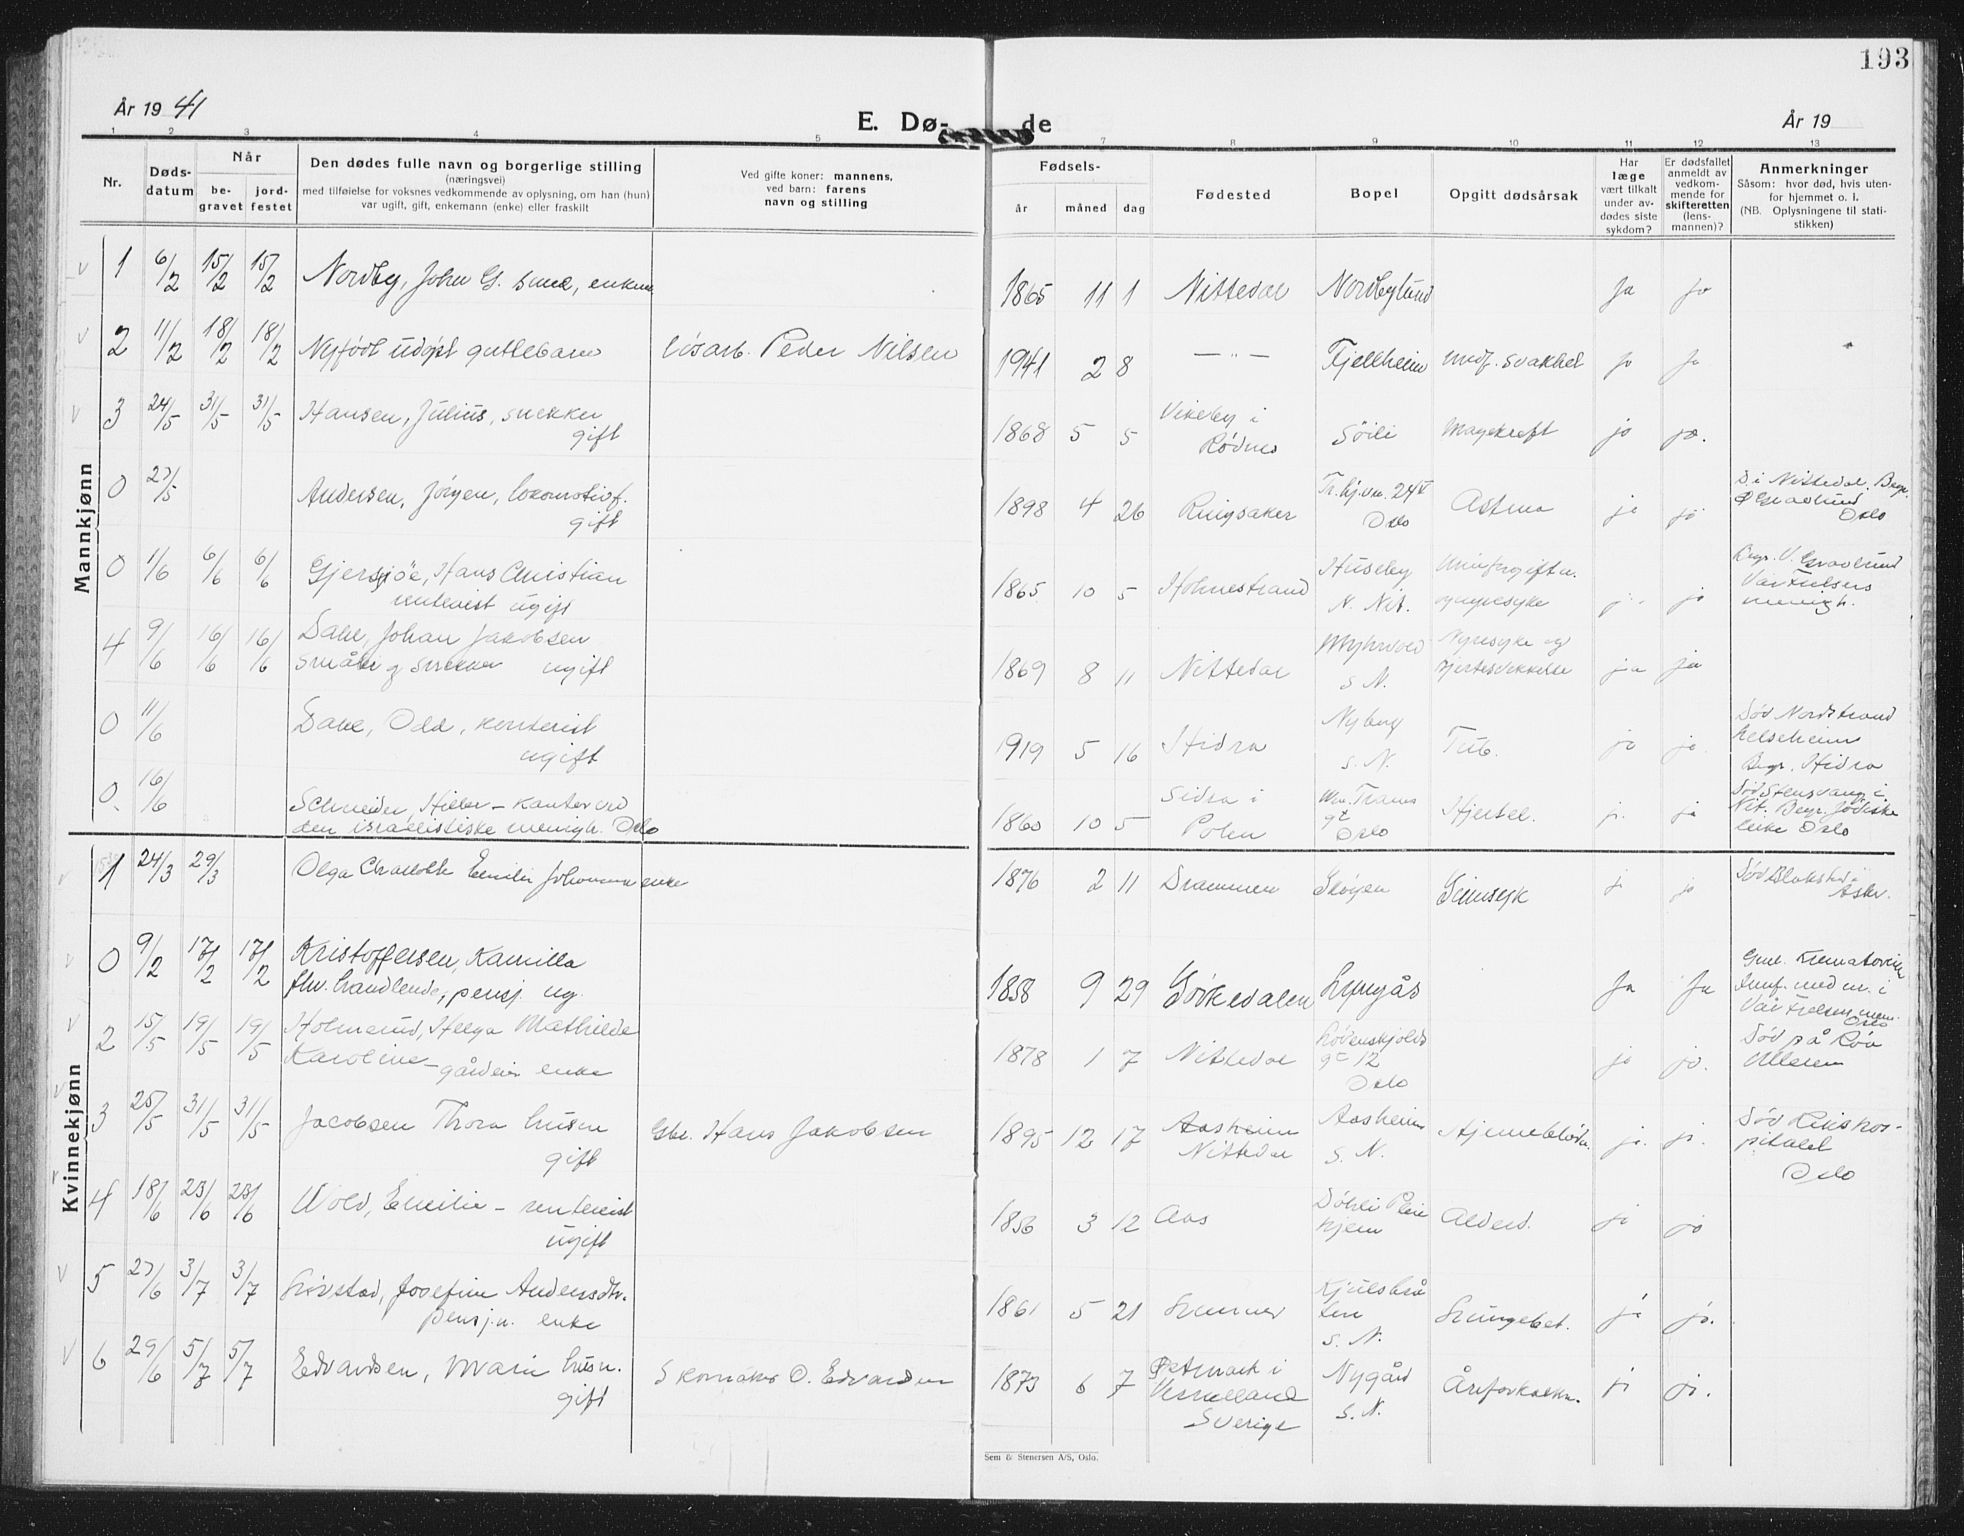 193
År 1941
E. Dø-
de
År 19
1 2 3 4 5 7 8 9 10 11 12 13
Nr.
Døds-
datum
Når
be-
gravet
jord-
festet
Den dødes fulle navn og borgerlige stilling
(næringsvei)
med tilføielse for voksnes vedkommende av oplysning, om han (hun)
var ugift, gift, enkemann (enke) eller fraskilt
Ved gifte koner: mannens,
ved barn: farens
navn og stilling
Fødsels-
år måned dag
Fødested
Bopel
Opgitt dødsårsak
Har
læge
vært tilkalt
under av-
dødes siste
sykdom?
Er dødsfallet
anmeldt av
vedkom-
mende for
skifteretten
(lens-
mannen)?
Anmerkninger
Såsom: hvor død, hvis uten-
for hjemmet o. l.
(NB. Oplysningene til stati-
stikken)
Mannkjønn
1 6/2 15/2 15/2 Nordby, John G. smed, enkem. 1865 11 1 Nittedal Nordbylund Ja Ja
2 11/2 18/2 18/2 Nyfødt udøpt guttebarn løsarb. Peder Nilsen 1941 2 8 — " — Fjellheim medf. svakhet ja ja
3 24/5 31/5 31/5 Hansen, Julius, snekker
gift
1868 5 5 Vikeby i
Rødnes
Søili Magekreft ja ja.
0 27/5 Andersen, Jörgen, lokomotivf.
gift
1898 4 26 Ringsaker Tr.hj.vn. 24
Oslo
Astma ja ja
D. i Nittedal. Begr.
Ø Gravlund
Oslo
0 1/6 6/6 6/6 Gjersjøe, Hans Christian
rentenist ugift
1865 10 5 Holmestrand Huseby
N. Nit.
Urinforgiftn.
og nyresyke
ja ja
Begr. V. Gravlund
Vår Frelsers
menigh.
4 9/6 16/6 16/6 Dahl, Johan Jakobsen
småbr. og snekker ugift
1869 8 11 Nittedal Myhrvold
S. N.
Nyresyke og
hjertesvekkelse
ja ja
0 11/6 Dahl, Odd, kontorist
ugift
1919 5 16 Hidra Nyborg
S. N.
Tub. ja ja
Død Nordstrand
helseheim
Begr. Hidra
0. 16/6 Schneider, Hiller - kantor ved
den israelistiske menigh. Oslo
1860 10 5 Sidra i
Polen
Wm. Thranes
gt
Oslo
Hjertel. ja ja
Død Stensvang i
Nit. Begr. Jödiske
Oslo
Kvinnekjønn
1 24/3 29/3 Olga Charlotte Emilie Johanna enke 1876 2 11 Drammen Skøyen Sinnsyk ja ja
Død Blakstad i
Asker.
0 9/2 17/2 17/2 Kristoffersen, Kamilla
fhv. handlende, pensj. ug.
1858 9 29 Sørkedalen Lyngås Ja Ja
Gml. Krematorium
med m. i
Vår Frelsers men.
Oslo
2 15/5 19/5 19/5 Holmsrud, Helga Mathilde
Karoline - gårdeier enke
1878 1 7 Nittedal Løvenskjolds
gt 12
Oslo
ja ja.
Død på Röa
Ulleren
3 25/5 31/5 31/5 Jacobsen Thora husm
gift
Gbr. Hans Jakobsen
1895 12 17 Aasheim
Nittedal
Aasheim
S. N.
Hjerneblödn. ja. ja.
Død Rikshos-
pitalet
Oslo
4 18/6 23/6 23/6 Wold, Emilie - rentenist
ugift
1856 3 12 Aas Döhli Pleie
hjem
Alderd. ja ja
5 27/6 3/7 3/7 Lövstad, Josefine Andersdtr.
pensj.n. enke
1861 5 21 Lunner Kjulsbrå
ten
S. N.
Lungebet. ja ja.
6 29/6 5/7 5/7 Edvardsen, Marie husm.
gift
Skomaker O. Edvardsen
1873 6 7 Østmark i
Vermelland
Sverige
Nygård
S. N.
Åreforkalkn. ja ja.
Sem & Stenersen A/S, Oslo.